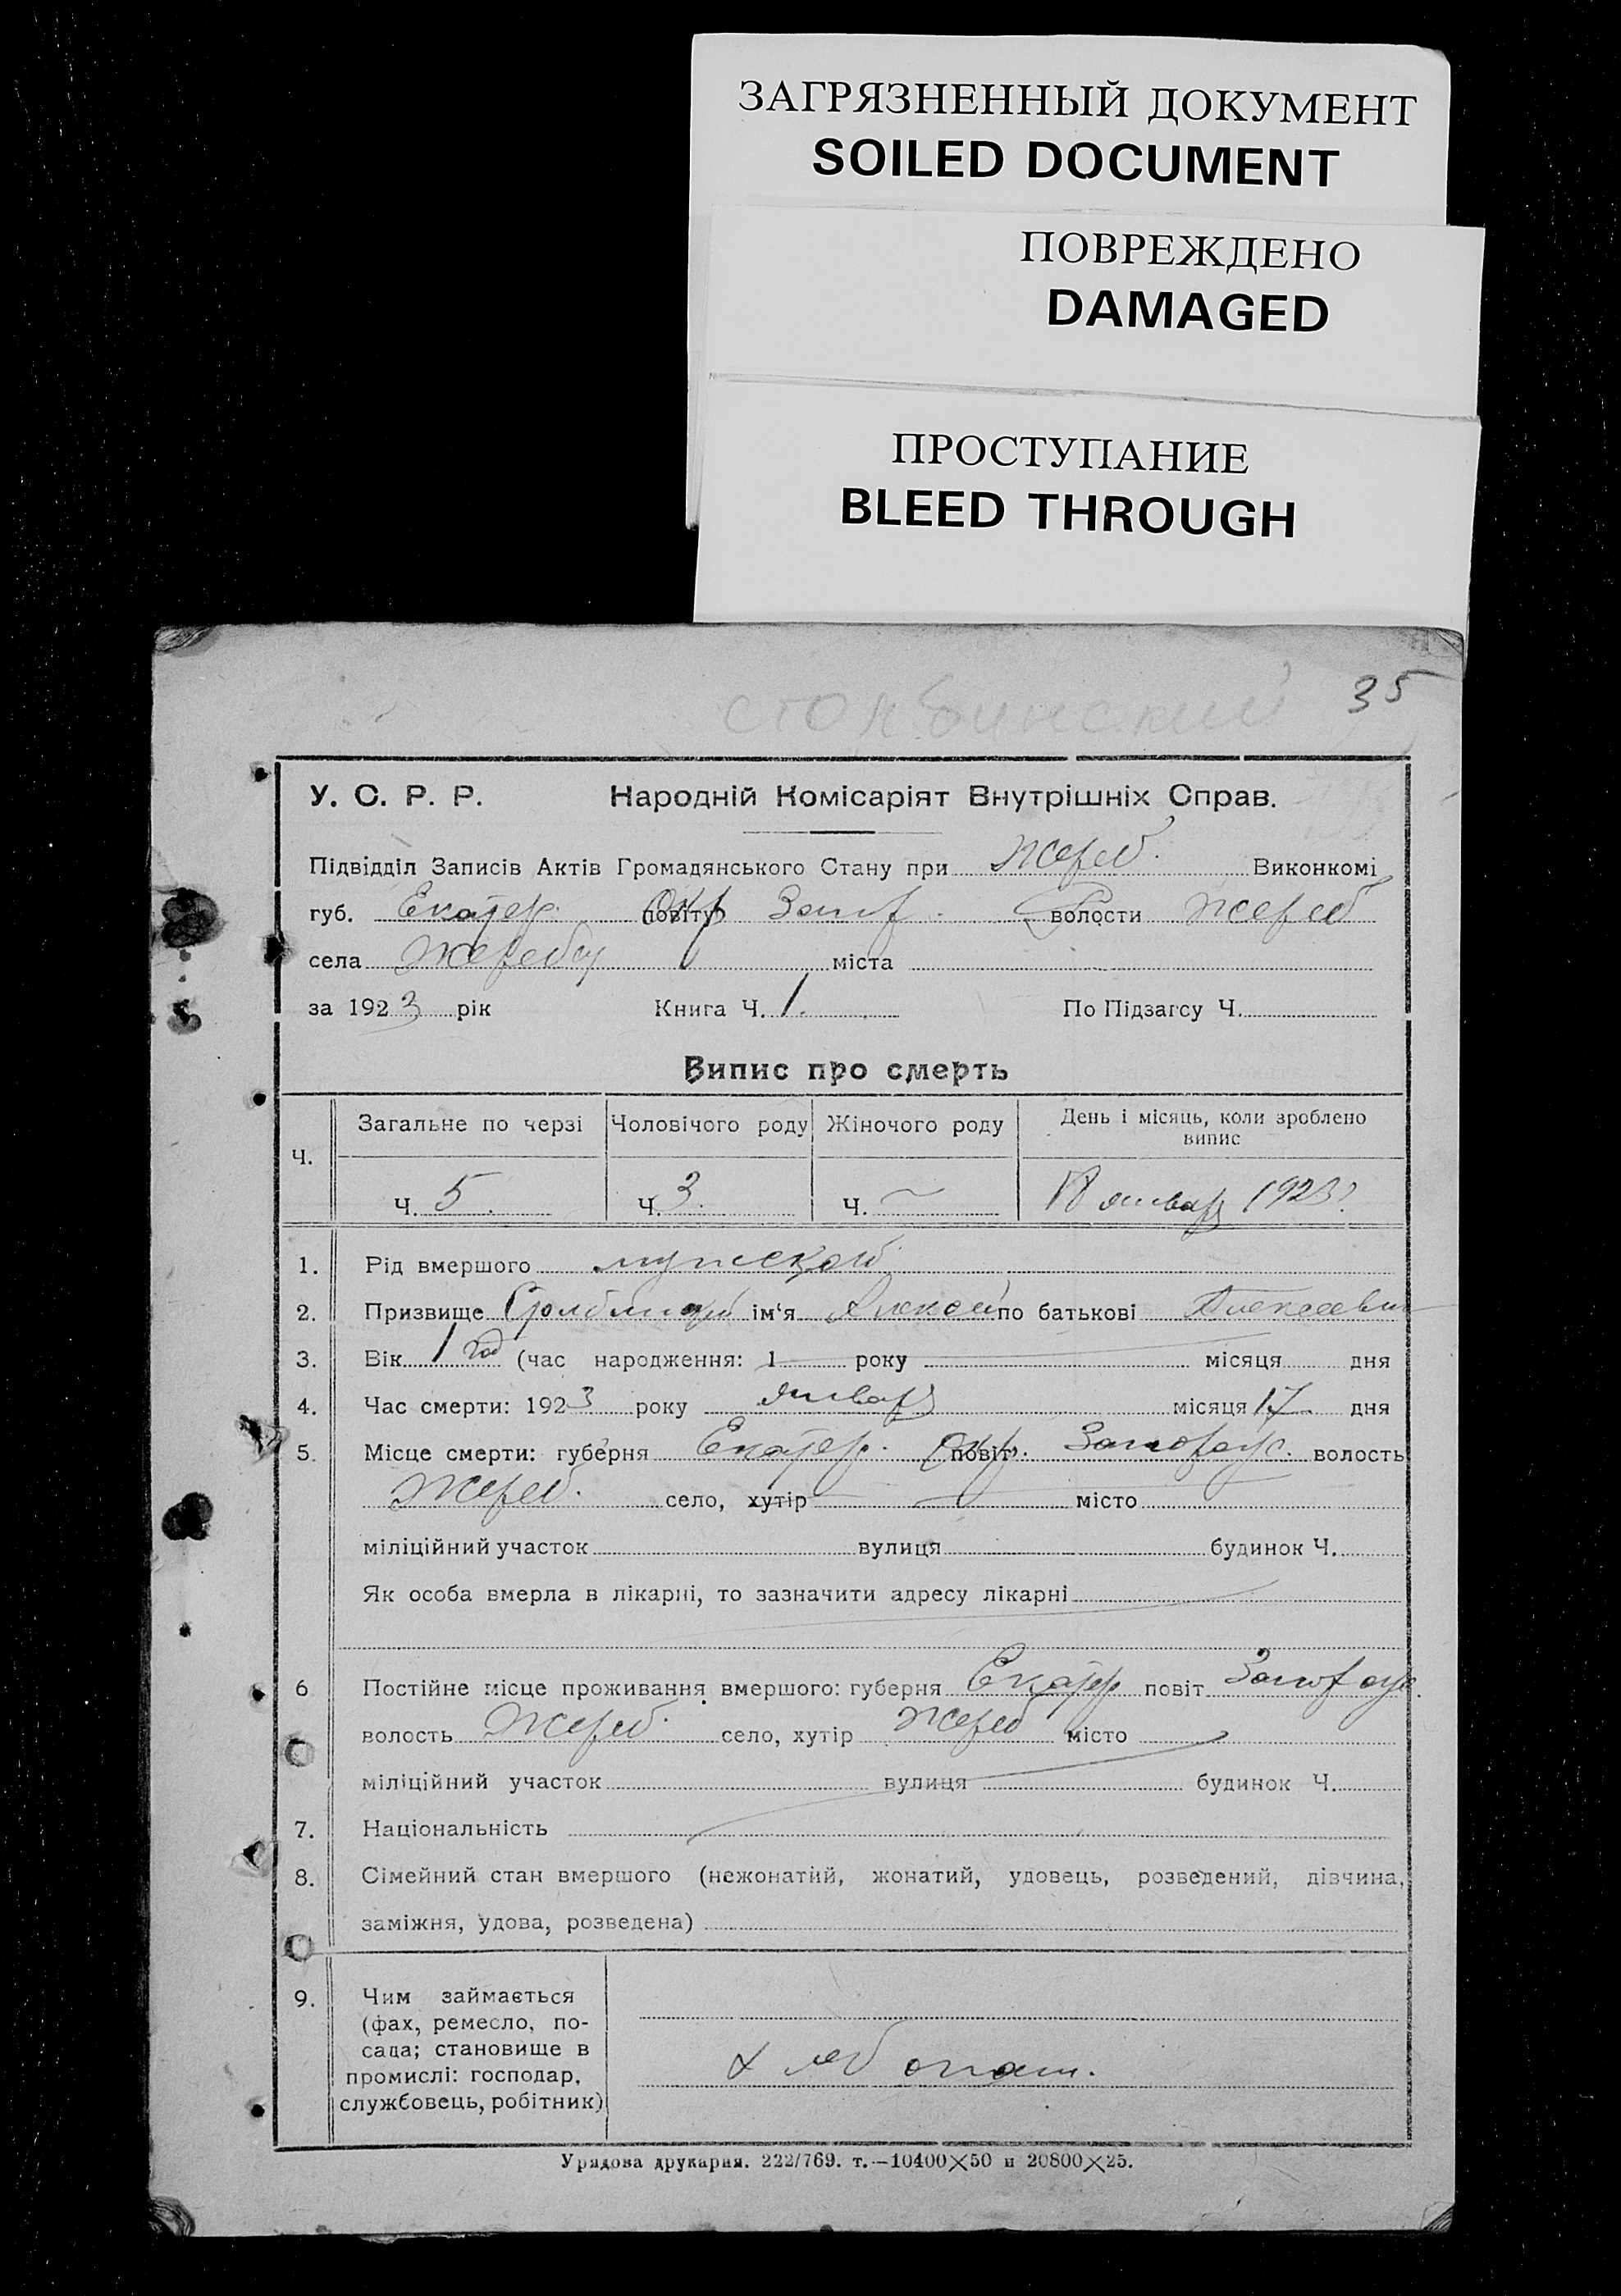 ЗАГРЯЗНЕННЫЙ ДОКУМЕНТ
SOILED DOCUMENT
ПОВРЕЖДЕНО
DAMAGED
ПРОСТУПАНИЕ
BLEED THROUGH
столбинский 35
У. С. Р. Р. Народній Комісаріят Внутрішніх Справ.
Підвідділ Записів Актів Громадянського Стану при Жереб. Виконкомі
губ. Екатер. повіту Окр Запор. волости Жереб
села Жеребец міста
за 1923 рік Книга Ч. 1. По Підзагсу Ч.
Випис про смерть
Ч. Загальне по черзі Чоловічого роду Жіночого роду День і місяць, коли зроблено випис
Ч. 5. Ч. 3. Ч. 18 января 1923
1. Рід вмершого мужской
2. Призвище Столбинский ім'я Алексей по батькові Алексеевич
3. Вік 1 год (час народження: 1 року місяця дня
4. Час смерти: 1923 року января місяця 17 дня
5. Місце смерти: губерня Екатер. повіт Окр. Запорож. волость
Жереб. село, хутір місто
міліційний участок вулиця будинок Ч.
Як особа вмерла в лікарні, то зазначити адресу лікарні
6 Постійне місце проживання вмершого: губерня Екатер повіт Запорож.
волость Жереб. село, хутір Жереб місто
міліційний участок вулиця будинок Ч.
7. Національність
8. Сімейний стан вмершого (нежонатий, жонатий, удовець, розведений, дівчина,
заміжня, удова, розведена)
9. Чим займається
(фах, ремесло, по-
сада; становище в
промислі: господар,
службовець, робітник)
хлебопаш.
Урядова друкарня. 222/769. т.—10400×50 и 20800×25.